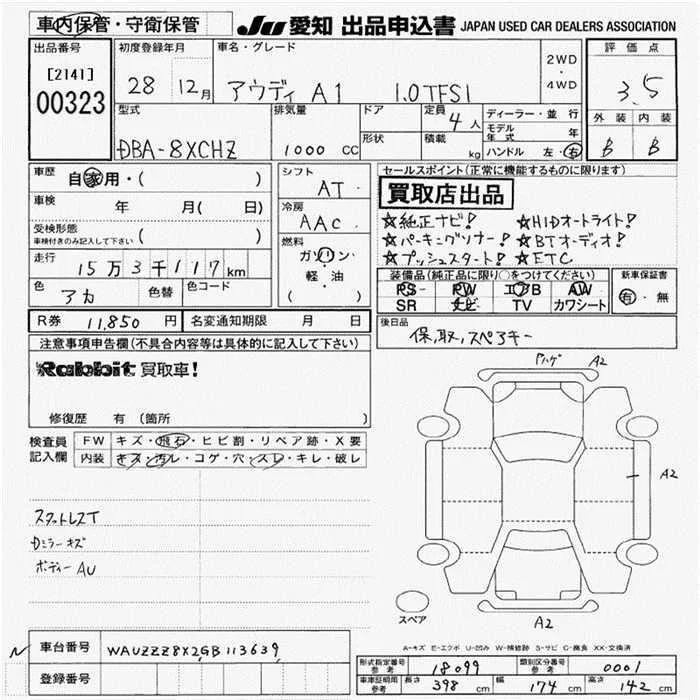 車内保管・守衛保管
JU 愛知 出品申込書 JAPAN USED CAR DEALERS ASSOCIATION
出品番号
[2141]
00323
初度登録年月
28 12月
車名・グレード
アウディ A1 1.0TFSI
2WD
・
4WD
評価点
3.5
外装 内装
B B
型式
DBA-8XCHZ
排気量
1000 CC
ドア
形状
定員 4人
積載 kg
ディーラー・並行
モデル年式 年
ハンドル 左・右
車歴 自家用・( )
車検 年 月( 日)
受検形態
車検付きのみ記入して下さい ( )
走行 15万3千117km
色 アカ 色替 色コード
シフト
AT
冷房
AAC
燃料
ガソリン
軽・油
( )
セールスポイント(正常に機能するものに限ります)
買取店出品
☆純正ナビ! ☆HIDオートライト!
☆パーキングソナー! ☆BTオーディオ!
☆プッシュスタート! ☆ETC
装備品(純正品に限り○をつけてください)
PS PW エアB AW
SR ナビ TV カワシート
新車保証書
有・無
R券 11,850 円 名変通知期限 月 日
後日品
保,取,スペアキー
注意事項申告欄(不具合内容等は具体的に記入して下さい)
Rabbit 買取車!
修復歴 有 (箇所 )
検査員
記入欄
FW キズ・飛石・ヒビ割・リペア跡・X要
内装 キズ・汚レ・コゲ・穴・スレ・キレ・破レ
スタットレスT
Dミラーキズ
ボディーAU
ハゲ A2
A2
スペア
A2
A-キズ E-エクボ U-凹み W-補修跡 S-サビ C-腐食 XX-交換済
車台番号 WAUZZZ8X2GB113639
登録番号
形式指定番号
参考
18099
類別区分番号
参考
0001
車庫証明用
参考
長さ 398 cm 幅 174 cm 高さ 142 cm